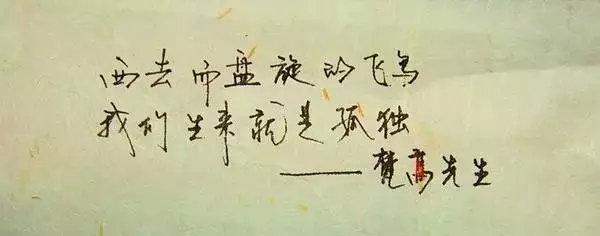 西去而盘旋的飞鸟
我们生来就是孤独
——梵高先生